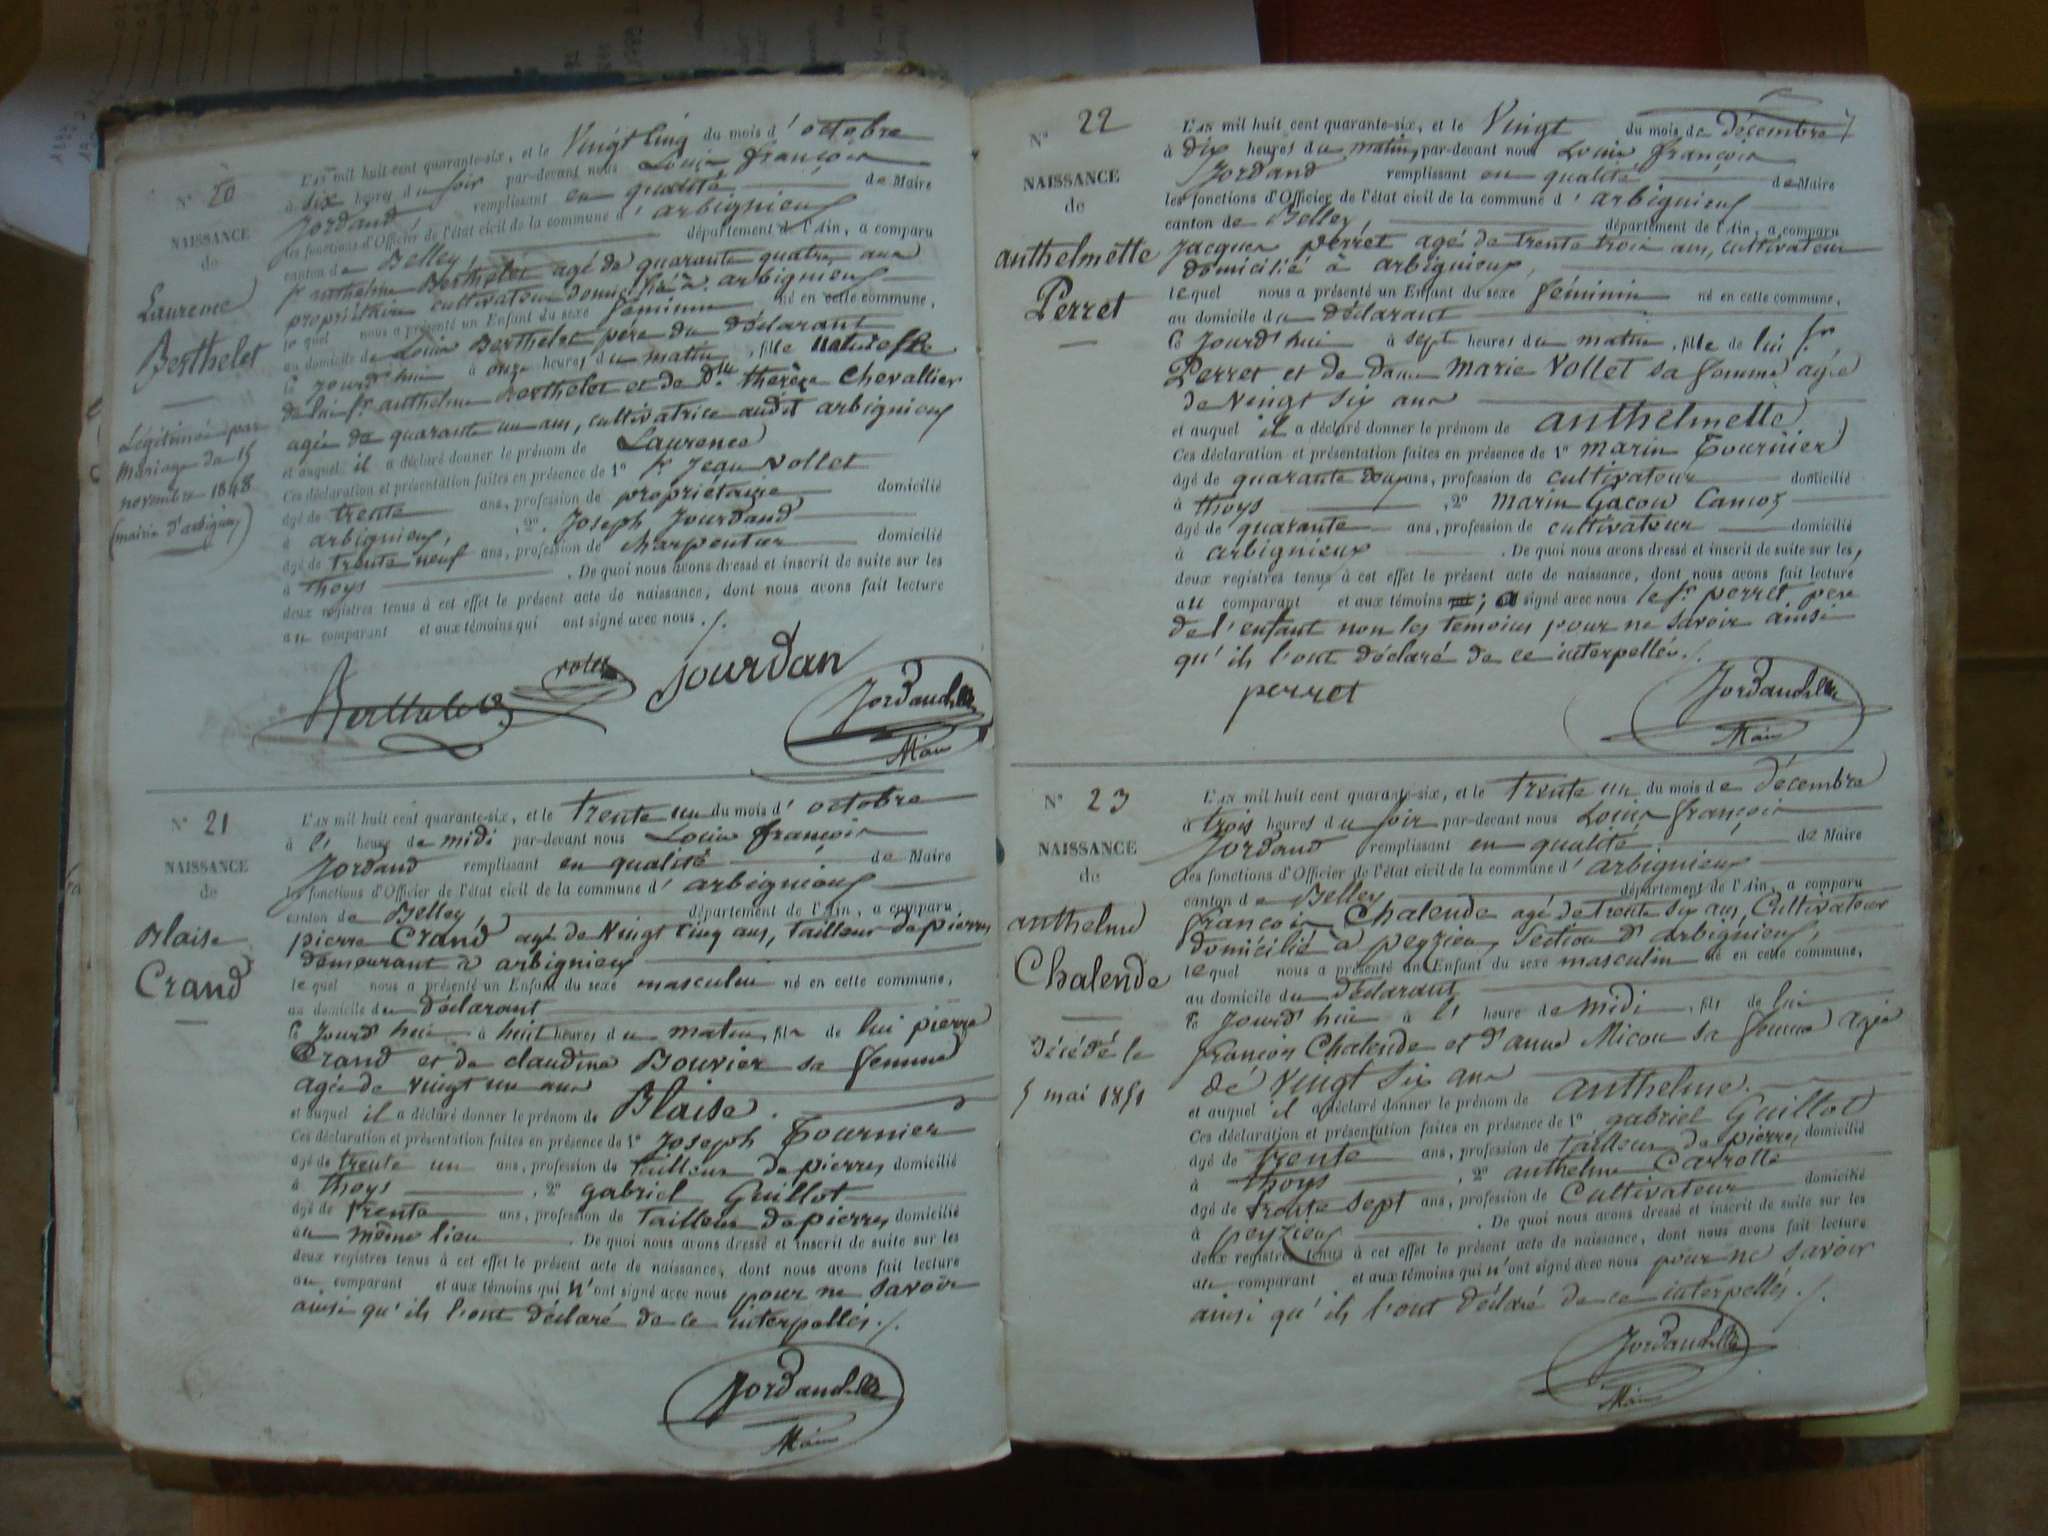 N° 20
NAISSANCE
de
Laurence
Berthelet
Légitimée par
mariage du 15
novembre 1848
(mairie d'arbignieu)
L'AN mil huit cent quarante-six, et le Vingt Cinq du mois d'octobre
à six heures du soir par-devant nous Louis françois
Jordand remplissant en qualité de Maire
les fonctions d'Officier de l'état civil de la commune d'arbignieux
canton de Belley, département de l'Ain, a comparu
sr anthelme Berthelet agé de quarante quatre ans
propriétaire cultivateur domicilié à arbignieux
lequel nous a présenté un Enfant du sexe féminin né en cette commune,
au domicile de Louis Berthelet père du déclarant
ce jourd'hui à onze heures du matin, fille naturelle
de lui sr anthelme Berthelet et de dlle thérèze Chevallier
agée de quarante un ans, cultivatrice audit arbignieux
et auquel il a déclaré donner le prénom de Laurence
Ces déclaration et présentation faites en présence de 1° sr Jean Vollet
âgé de trente ans, profession de propriétaire domicilié
à arbignieux, 2° Joseph Jourdand
âgé de trente neuf ans, profession de charpentier domicilié
à thoys. De quoi nous avons dressé et inscrit de suite sur les
deux registres tenus à cet effet le présent acte de naissance, dont nous avons fait lecture
au comparant et aux témoins qui ont signé avec nous ./.
Berthelet volet Jourdan
Jordand
Maire
N° 21
NAISSANCE
de
Blaise
Crand
L'AN mil huit cent quarante-six, et le trente un du mois d'octobre
à l' heure de midi par-devant nous Louis françois
Jordand remplissant en qualité de Maire
les fonctions d'Officier de l'état civil de la commune d'arbignieux
canton de Belley, département de l'Ain, a comparu
pierre Crand agé de Vingt cinq ans, tailleur de pierres
demeurant à arbignieux
lequel nous a présenté un Enfant du sexe masculin né en cette commune,
au domicile du déclarant
ce jourd'hui à huit heures du matin, fils de lui pierre
Crand et de claudine Bouvier sa femme
agée de vingt un ans
et auquel il a déclaré donner le prénom de Blaise.
Ces déclaration et présentation faites en présence de 1° Joseph Tournier
âgé de trente un ans, profession de tailleur de pierres domicilié
à thoys, 2° gabriel Guillot
âgé de trente ans, profession de tailleur de pierres domicilié
au même lieu. De quoi nous avons dressé et inscrit de suite sur les
deux registres tenus à cet effet le présent acte de naissance, dont nous avons fait lecture
au comparant et aux témoins qui n'ont signé avec nous pour ne savoir
ainsi qu'ils l'ont déclaré de ce interpellés ./.
Jordand
Maire
N° 22
NAISSANCE
de
anthelmette
Perret
L'AN mil huit cent quarante-six, et le Vingt du mois de décembre
à dix heures du matin, par-devant nous Louis françois
Jordand remplissant en qualité de Maire
les fonctions d'Officier de l'état civil de la commune d'arbignieux
canton de Belley, département de l'Ain, a comparu
jacques perret agé de trente trois ans, cultivateur
domicilié à arbignieux,
lequel nous a présenté un Enfant du sexe féminin né en cette commune,
au domicile du déclarant
ce jourd'hui à sept heures du matin, fille de lui sr
Perret et de dame Marie Vollet sa femme agée
de Vingt six ans
et auquel il a déclaré donner le prénom de anthelmette
Ces déclaration et présentation faites en présence de 1° marin Tournier
âgé de quarante deux ans, profession de cultivateur domicilié
à thoys, 2° marin Gacon Camoz
âgé de quarante ans, profession de cultivateur domicilié
à arbignieux. De quoi nous avons dressé et inscrit de suite sur les
deux registres tenus à cet effet le présent acte de naissance, dont nous avons fait lecture
au comparant et aux témoins ; a signé avec nous le sr perret pere
de l'enfant non les temoins pour ne savoir ainsi
qu'ils l'ont déclaré de ce interpellés ./.
perret
Jordand
Maire
N° 23
NAISSANCE
de
anthelme
Chalende
Décédé le
5 mai 1851
L'AN mil huit cent quarante-six, et le trente un du mois de décembre
à trois heures du soir par-devant nous Louis françois
Jordand remplissant en qualité de Maire
les fonctions d'Officier de l'état civil de la commune d'arbignieux
canton de Belley département de l'Ain, a comparu
françois Chalende agé de trente six ans, Cultivateur
domicilié à peyzieu, Section d'Arbignieux,
lequel nous a présenté un Enfant du sexe masculin né en cette commune,
au domicile du déclarant
ce jourd'hui à l' heure de midi, fils de lui
françois Chalende et d'anne Micou sa femme agée
de Vingt six ans
et auquel il a déclaré donner le prénom de anthelme.
Ces déclaration et présentation faites en présence de 1° gabriel Guillot
âgé de trente ans, profession de tailleur de pierres domicilié
à thoys, 2° anthelme Carrotte
âgé de trente sept ans, profession de Cultivateur domicilié
à peyzieux. De quoi nous avons dressé et inscrit de suite sur les
deux registres tenus à cet effet le présent acte de naissance, dont nous avons fait lecture
au comparant et aux témoins qui n'ont signé avec nous pour ne savoir
ainsi qu'ils l'ont déclaré de ce interpellés ./.
Jordand
Maire